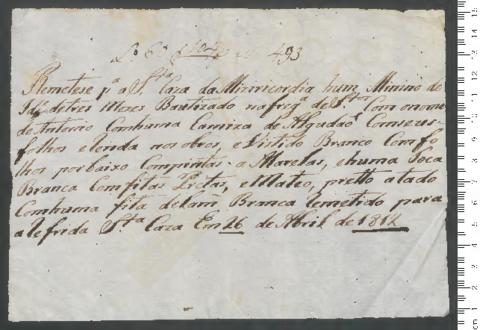 Lº 6º f 104 Nº 493
Remetese pª a Stª Caza da Mizericordia hum Minino de
Idᵉ de tres Mezes Bautizado na fregª de Com onome
de Antonio Com huma Camiza de Algudaõ Com seus
folhos e renda nos obros, e Vistido Branco Com fo
lhos por baixo Com pintas a Marelas, e huma Toca
Branca Com fitas Pretas, e Mateo, pretto atado
Com huma fita de lam Branca Remetido para
a Refirida Stª Caza Em 26 de Abril de 1812